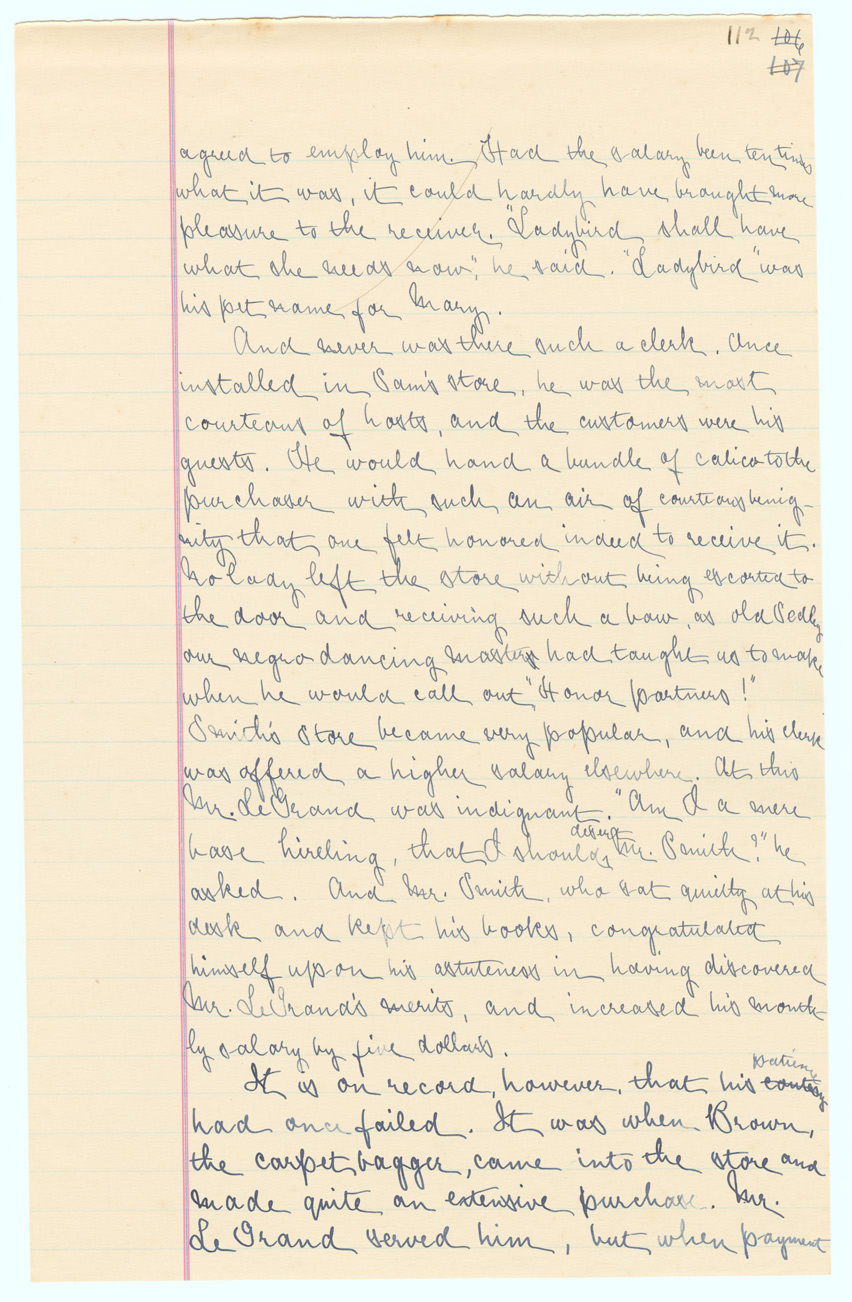 112 106
107
agreed to employ him. Had the salary been ten times
what it was, it could hardly have brought more
pleasure to the receiver. "Ladybird shall have
what she needs now", he said. "Ladybird" was
his pet name for Mary.
And never was there such a clerk. Once
installed in Sam's store, he was the most
courteous of hosts, and the customers were his
guests. He would hand a bundle of calico to the
purchaser with such an air of courteous benig-
nity that one felt honored indeed to receive it.
No lady left the store without being escorted to
the door and receiving such a bow, as old Sedley
our negro dancing master had taught us to make
when he would call out "Honor partners!"
Smith's store became very popular, and his clerk
was offered a higher salary elsewhere. At this
Mr. LeGrand was indignant. "Am I a mere
desert
base hireling, that I should Mr. Smith?" he
asked. And Mr. Smith, who sat quietly at his
desk and kept his books, congratulated
himself upon his astuteness in having discovered
Mr. LeGrand's merits, and increased his month-
ly salary by five dollars.
patience
It is on record, however, that his courtesy
had once failed. It was when Brown,
the carpet bagger, came into the store and
made quite an extensive purchase. Mr.
Le Grand served him, but when payment